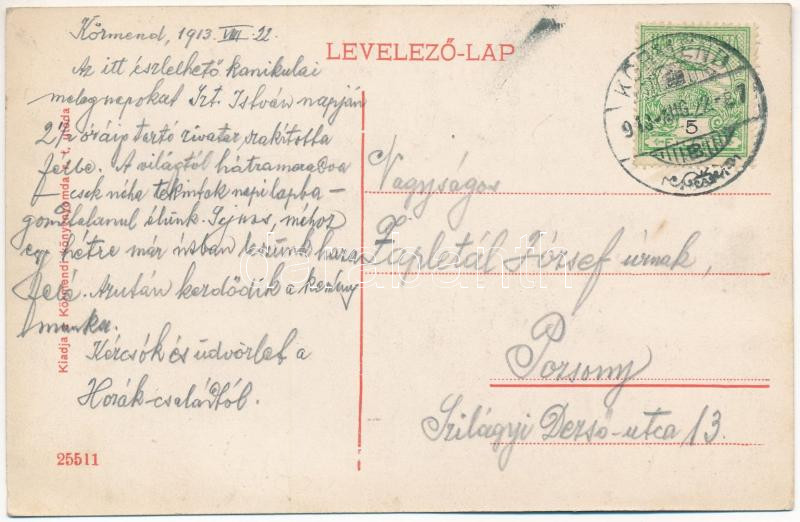 Körmend, 1913 VIII. 22.
LEVELEZŐ-LAP
KÖRMEND
913 AUG. 22
5
Az itt észlelhető kanikulai
melegnapokat Szt. István napján
2½ óráig tartó zivatar szakította
félbe. A világtól hátramaradva
– csak néha tekintünk napilapba –
gondtalanul élünk. Sajnos, mához
egy hétre már útban leszünk haza
felé. Azután kezdődik a kemény
munka.
Kézcsók és üdvözlet a
Horák-családtól.
Nagyságos
Zapletál József úrnak,
Pozsony
Szilágyi Dezső-utca 13.
Kiadja a Körmendi könyvnyomda r. t. utóda
25511
darabanth